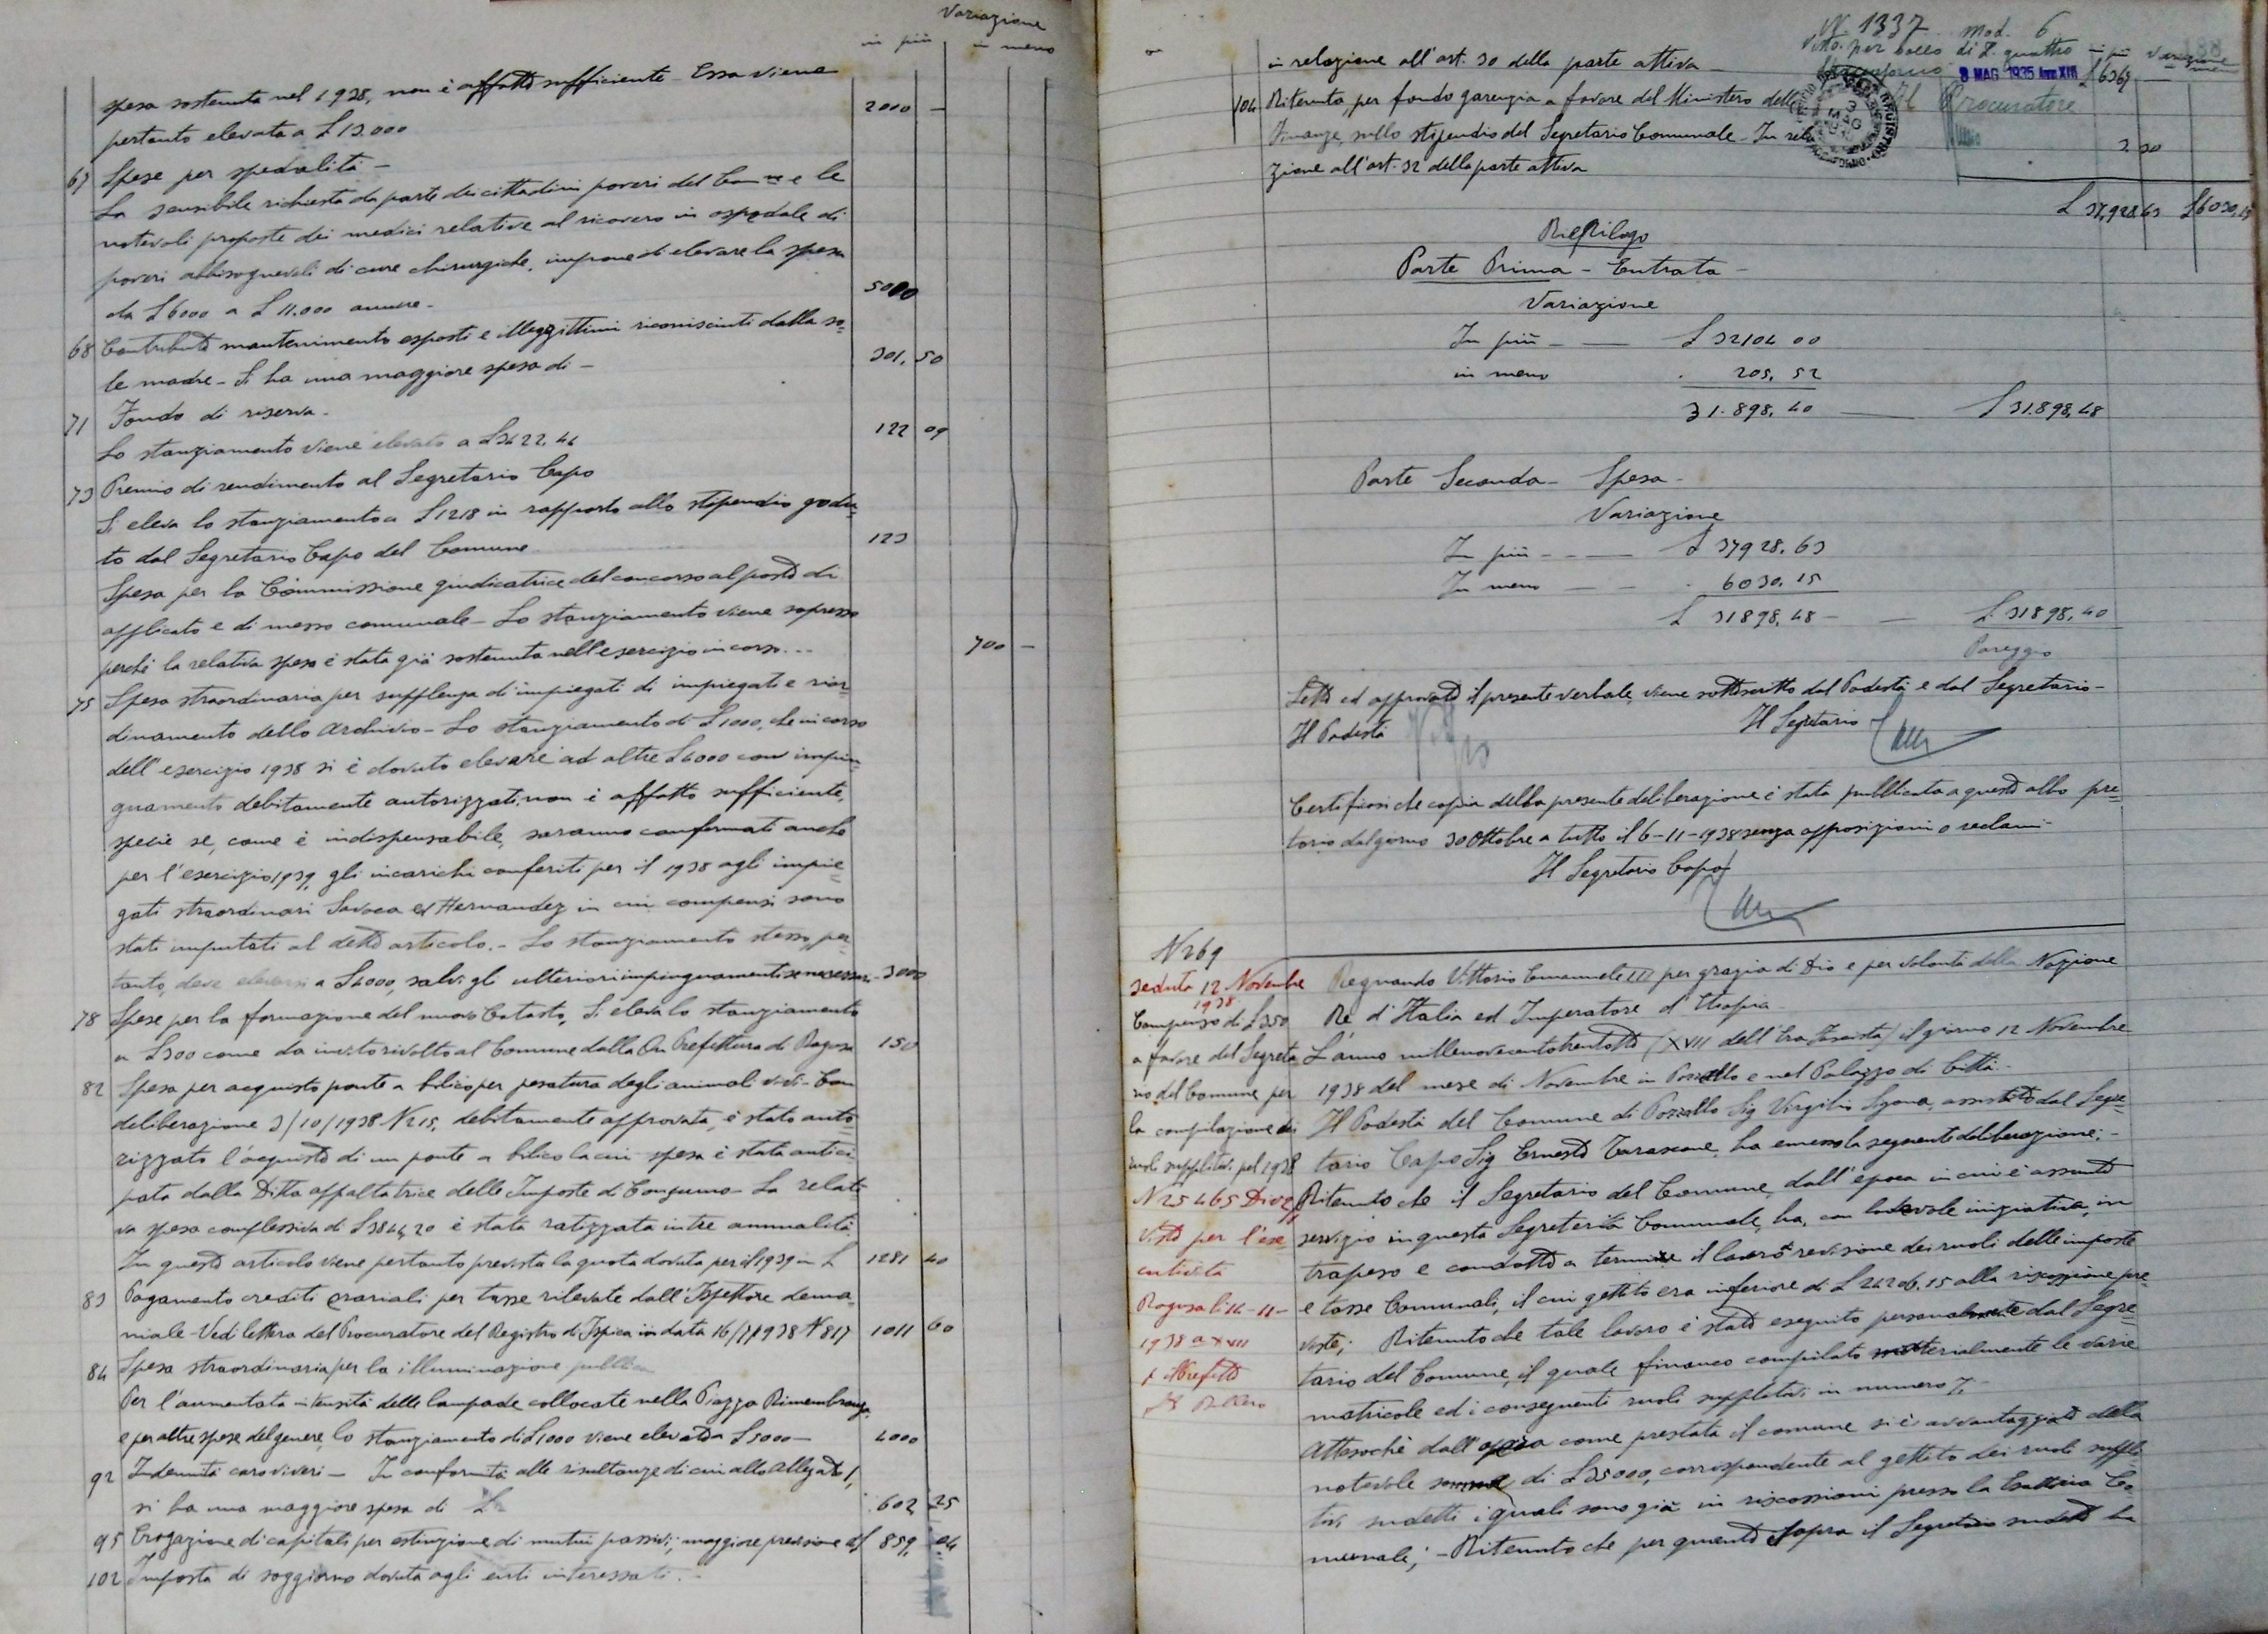 Variazione
in più in meno
spesa sostenuta nel 1938, non è affatto sufficiente - Essa viene
pertanto elevata a £ 13.000 2000 —
67 Spese per spedalità -
La sensibile richiesta da parte dei cittadini poveri del Comune e le
notevoli proposte dei medici relative al ricovero in ospedale di
poveri abbisognevoli di cure chirurgiche, impone di elevare la spesa
da £ 6000 a £ 11.000 annue - 5000
68 Contributo mantenimento esposti e illeggittimi riconisciuti dalla so=
le madre - Si ha una maggiore spesa di - 301, 50
71 Fondo di riserva -
Lo stanziamento viene elevato a £ 3422.46 122 09
73 Premio di rendimento al Segretario Capo
Si eleva lo stanziamento a £ 1218 in rapporto allo stipendio godu=
to dal Segretario Capo del Comune 123
Spesa per la Commissione giudicatrice del concorso al posto di
applicato e di messo comunale - Lo stanziamento viene sopresso
perchè la relativa spesa è stata già sostenuta nell'esercizio in corso... 700 —
75 Spesa straordinaria per supplenza di impiegati di impiegati e rior=
dinamento dello archivio - Lo stanziamento di £ 1000, che in corso
dell'esercizio 1938 si è dovuto elevare ad altre £ 6000 con impin=
guamento debitamente autorizzati, non è affatto sufficiente,
specie se, come è indispensabile, saranno confermati anche
per l'esercizio 1939, gli incarichi conferiti per il 1938 agli impie=
gati straordinari Savoca ed Hernandez in cui compensi sono
stati imputati al detto articolo. - Lo stanziamento stesso, per=
tanto, deve elevarsi a £ 4000, salvi gli ulteriori impinguamenti se necessari 3000
78 Spese per la formazione del nuovo Catasto, Si eleva lo stanziamento
a £ 300 come da invito rivolto al Comune dalla On Prefettura di Ragusa 150
82 Spesa per acquisto ponte a bilico per pesatura degli animali vivi - Con
deliberazione 3/10/1938 N 215, debitamente approvata, è stato auto=
rizzato l'acquisto di un ponte a bilico la cui spesa è stata antici
pata dalla Ditta appaltatrice delle Imposte di Consumo - La relati
va spesa complessiva di £ 3844,20 è stata ratizzata in tre annualità.
In questo articolo viene pertanto prevista la quota dovuta per il 1939 in £ 1281 40
83 Pagamento crediti erariali per tasse rilevate dall'Ispettore dema=
niale - Vedi lettera del Procuratore del Registro di Ispica in data 16/7/1938 N 817 1011 60
84 Spesa straordinaria per la illuminazione pubblica
Per l'aumentata intensità delle lampade collocate nella Piazza Rimembranza
e per altre spese del genere, lo stanziamento di £ 1000 viene elevato a £ 5000 - 4000
92 Indennità caroviveri - In conformità alle risultanze di cui allo allegato 1,
si ha una maggiore spesa di £ 602 25
95 Erogazione di capitali per estinzione di mutui passivi; maggiore previsione di 859, 04
102 Imposta di soggiorno dovuta agli enti interessati. -
N. 1337 Mod. 6
Visto per bollo di £. quattro
8 MAG 1935 Anno XIII
Il Procuratore
188
in più Variazione
in meno
in relazione all'art. 30 della parte attiva - 6369
104 Ritenuta, per fondo garenzia a favore del Ministero delle
Finanze, sullo stipendio del Segretario Comunale - In rela
zione all'art. 32 della parte attiva 3. 30
£ 37,928 63 £ 6030,15
Riepilogo
Parte Prima - Entrata -
Variazione
In più - — £ 32104 00
in meno . 205, 52
31.898, 40 — £ 31.898,48
Parte Seconda - Spesa -
Variazione
In più - — £ 37928. 63
In meno — . 6030. 15
£ 31898, 48 - — £ 31898, 40
Pareggio
Letto ed approvato il presente verbale, viene sottoscritto dal Podestà e dal Segretario -
Il Podestà Il Segretario
Certificasi che copia della presente deliberazione è stata pubblicata a questo albo pre=
torio dal giorno 30 Ottobre a tutto il 6-11-1938 senza opposizioni o reclami -
Il Segretario Capo
N 269
seduta 12 Novembre
1938
Compenso di £ 350
a favore del Segreta
rio del Comune per
la compilazione dei
ruoli suppletivi pel 1938
N 25465 Div 2/
Visto per l'ese
cutività
Ragusa li 14-11-
1938 a XVII
p Il Prefetto
Regnando Vittorio Emanuele III per grazia di Dio e per volontà della Nazione
Re d'Italia ed Imperatore d'Etiopia -
L'anno millenovecentotrentotto (XVII dell'Era Fascista) il giorno 12 Novembre
1938 del mese di Novembre in Pozzallo e nel Palazzo di Città -
Il Podestà del Comune di Pozzallo Sig Virgilio Sigona, assistito dal Segre=
tario Capo Sig Ernesto Tarascone, ha emesso la seguente deliberazione: -
Ritenuto che il Segretario del Comune, dall'epoca in cui è assunto
servizio in questa Segreteria Comunale, ha, con lodevole iniziativa, in
trapeso e condotto a termine il lavoro revisione dei ruoli delle imposte
e tasse Comunali, il cui gettito era inferiore di £ 24206.15 alla riscossione pre=
viste; Ritenuto che tale lavoro è stato eseguito personalmente dal Segre=
tario del Comune, il quale financo compilato materialmente le varie
matricole ed i conseguenti ruoli suppletivi in numero 7 -
Attesochè dall'opera come prestata il comune si è avvantaggiato della
notevole somma di £ 35000, corrispondente al gettito dei ruoli supple
tivi sudetti i quali sono già in riscossioni presso la Esattoria Co=
munale; - Ritenuto che per quanto sopra il Segretario sudetto ha